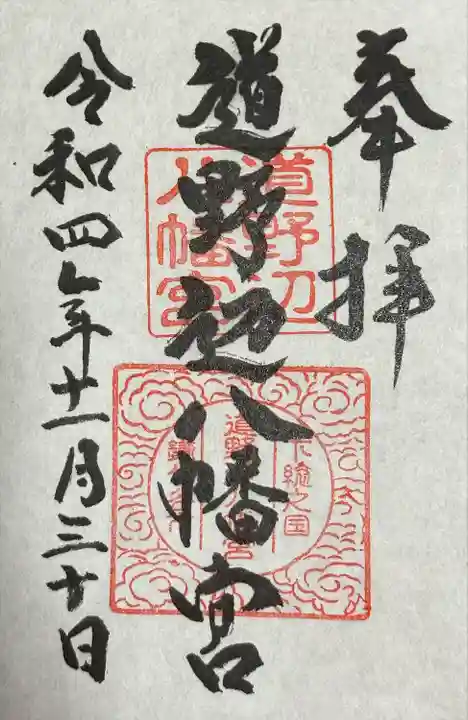 奉拝
道野辺八幡宮
令和四年十一月三十日
道野辺
八幡宮
下総之国